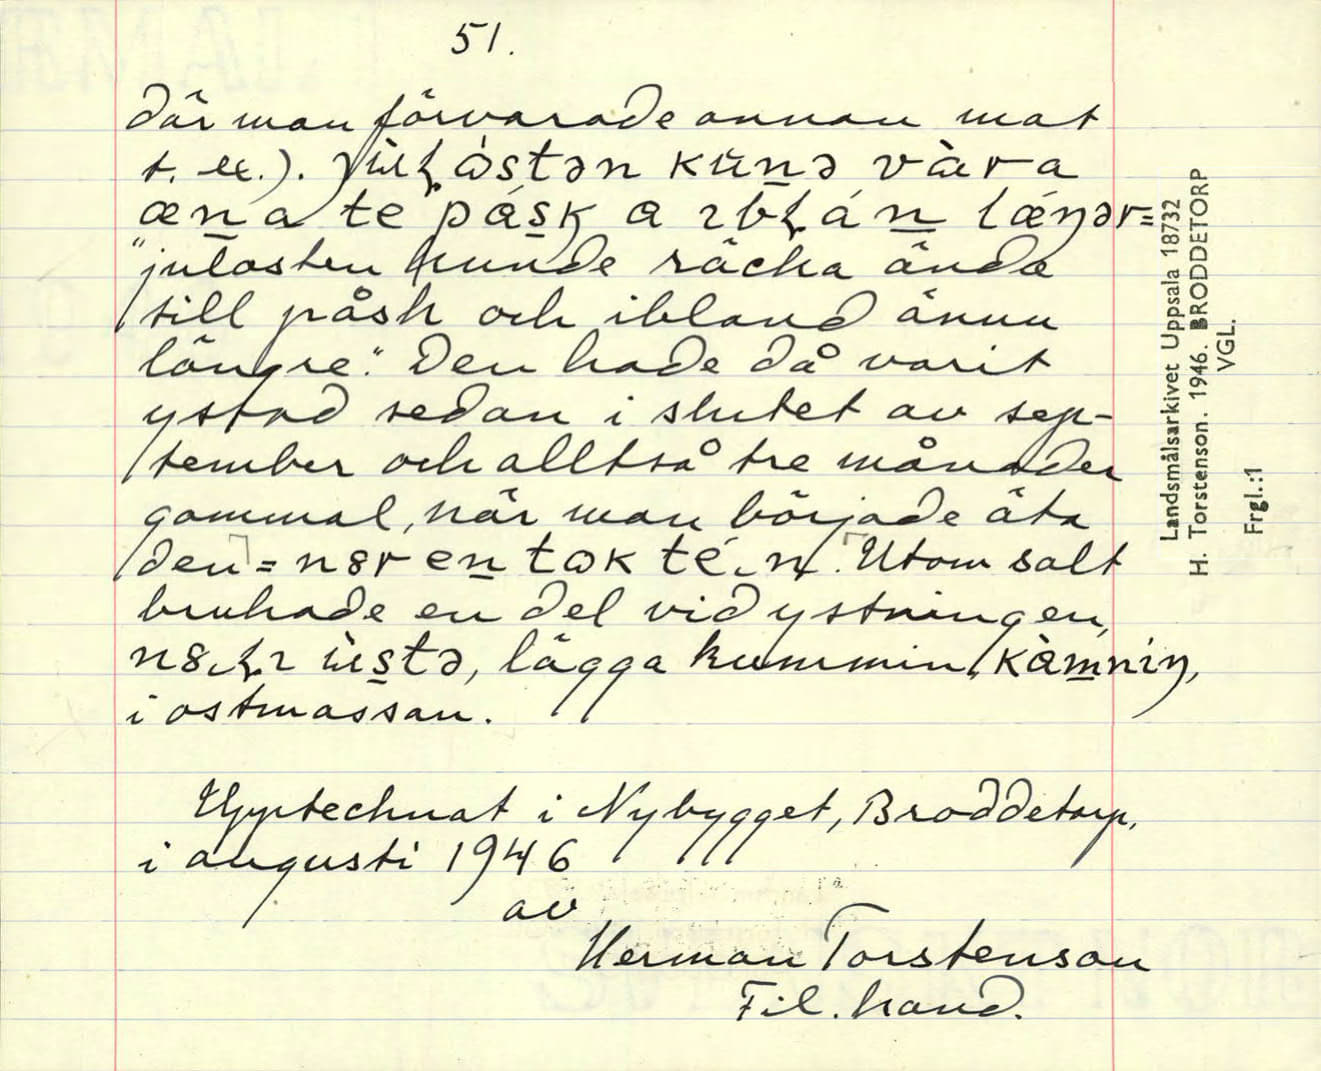 51.
där man förvarade annan mat
t. ex.). jùɫɷ́stən kùnə vàra
æna te pásk a ɪbɫán lǽŋər=
"julosten kunde räcka ända
till påsk och ibland ännu
längre". Den hade då varit
ystad sedan i slutet av sep-
tember och alltså tre månader
gammal, när man började äta
den = nȣr en tɷk té.n. Utom salt
brukade en del vid ystningen,
nȣ.ɫɪ ùstə, lägga kummin, kàmnɪŋ,
i ostmassan.
Upptecknat i Nybygget, Broddetorp,
i augusti 1946
av
Herman Torstenson
Fil. kand.
Landsmålsarkivet Uppsala 18732
H. Torstenson. 1946. BRODDETORP
VGL.
Frgl.:1